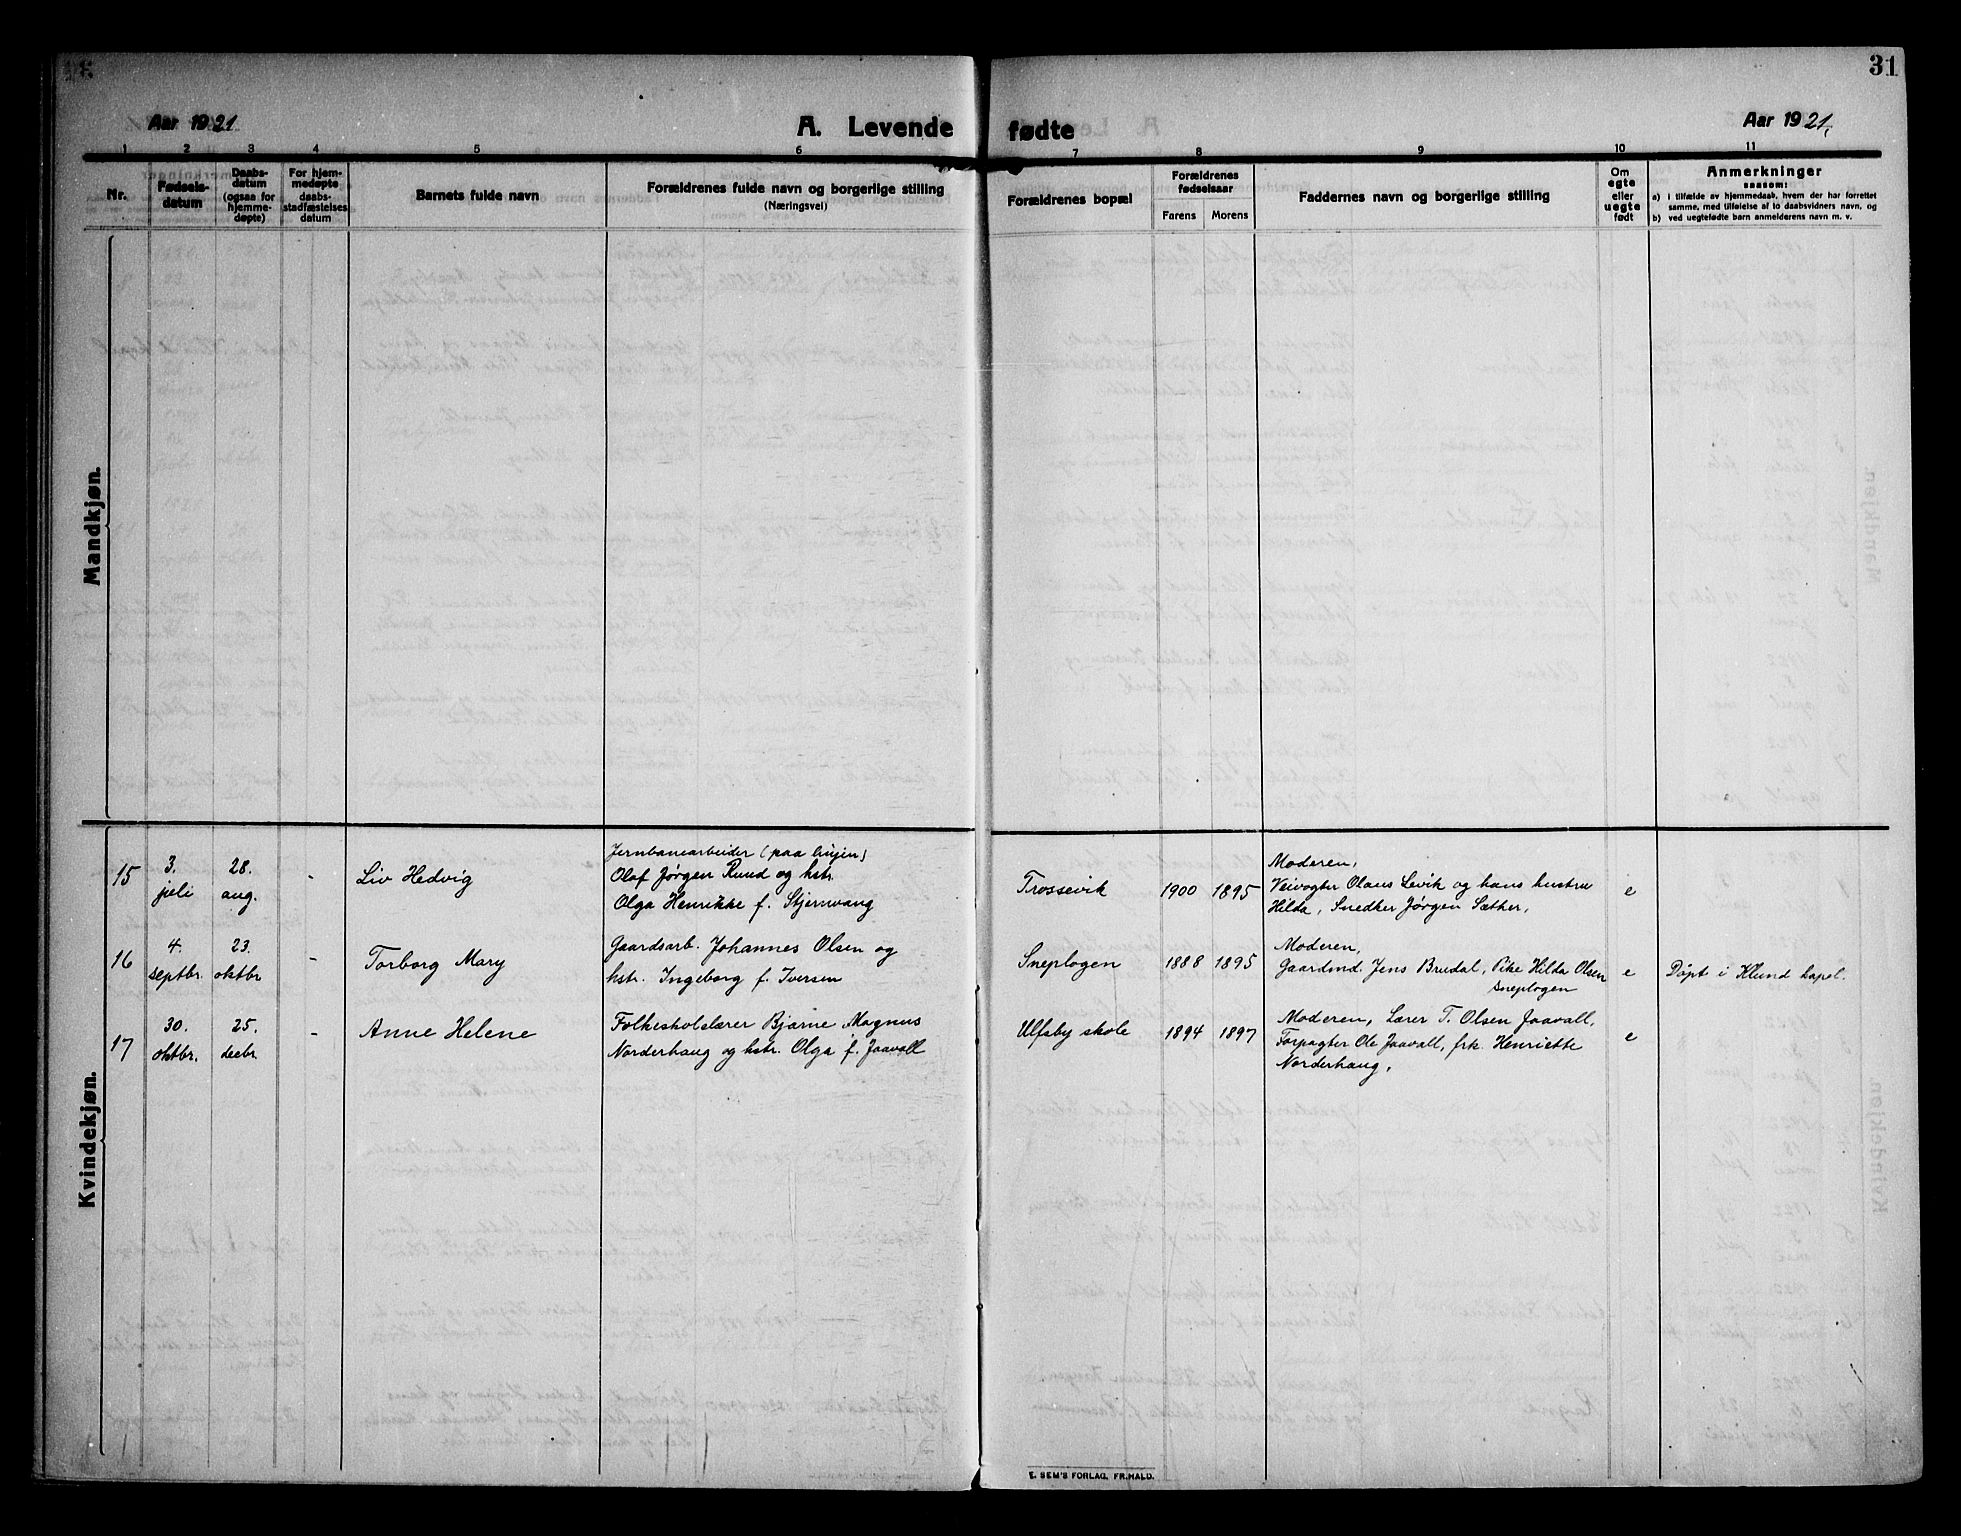 31
Aar 1921.
A. Levende
fødte
Aar 1921.
1 2 3 4 5 6 7 8 9 10 11
Nr.
Fødsels-
datum
Daabs-
datum
(ogsaa for
hjemme-
døpte)
For hjem-
medøpte
daabs-
stadfæstelses
datum
Barnets fulde navn
Forældrenes fulde navn og borgerlige stilling
(Næringsvei)
Forældrenes bopæl
Forældrenes
fødselsaar
Farens Morens
Faddernes navn og borgerlige stilling
Om
egte
eller
uegte
født
Anmerkninger
saasom:
a) i tilfælde av hjemmedaab, hvem der har forrettet
samme, med tilføielse af to daabsvidners navn, og
b) ved uegtefødte barn anmelderens navn m. v.
Mandkjøn.
Kvindekjøn.
15
3.
juli
28.
aug.
-
Liv Hedvig
Jernbanearbeider (paa linjen)
Olaf Jørgen Ruud og hstr.
Olga Henrikke f. Stjernvang
Trossevik
1900 1895
Moderen,
Veivogter Olaus Levik og hans hustru
Hilda, Snedker Jørgen Sæther,
e
16
4.
septbr.
23.
oktbr
-
Torborg Mary
Gaardsarb. Johannes Olsen og
hstr. Ingeborg f. Iversen
Sneplogen
1888 1895
Moderen,
Gaardmd. Jens Brudal, Pike Hilda Olsen
Sneplogen
e
Døpt i Klund kapel.
17
30.
oktbr.
25.
decbr.
-
Anne Helene
Folkeskolelærer Bjarne Magnus
Norderhaug og hstr. Olga f. Jaavall
Ulfsby skole
1894 1897
Moderen, Lærer T. Olsen Jaavall,
Forpagter Ole Jaavall, frk. Henriette
Norderhaug.
e
E. SEM'S FORLAG, FR.HALD.